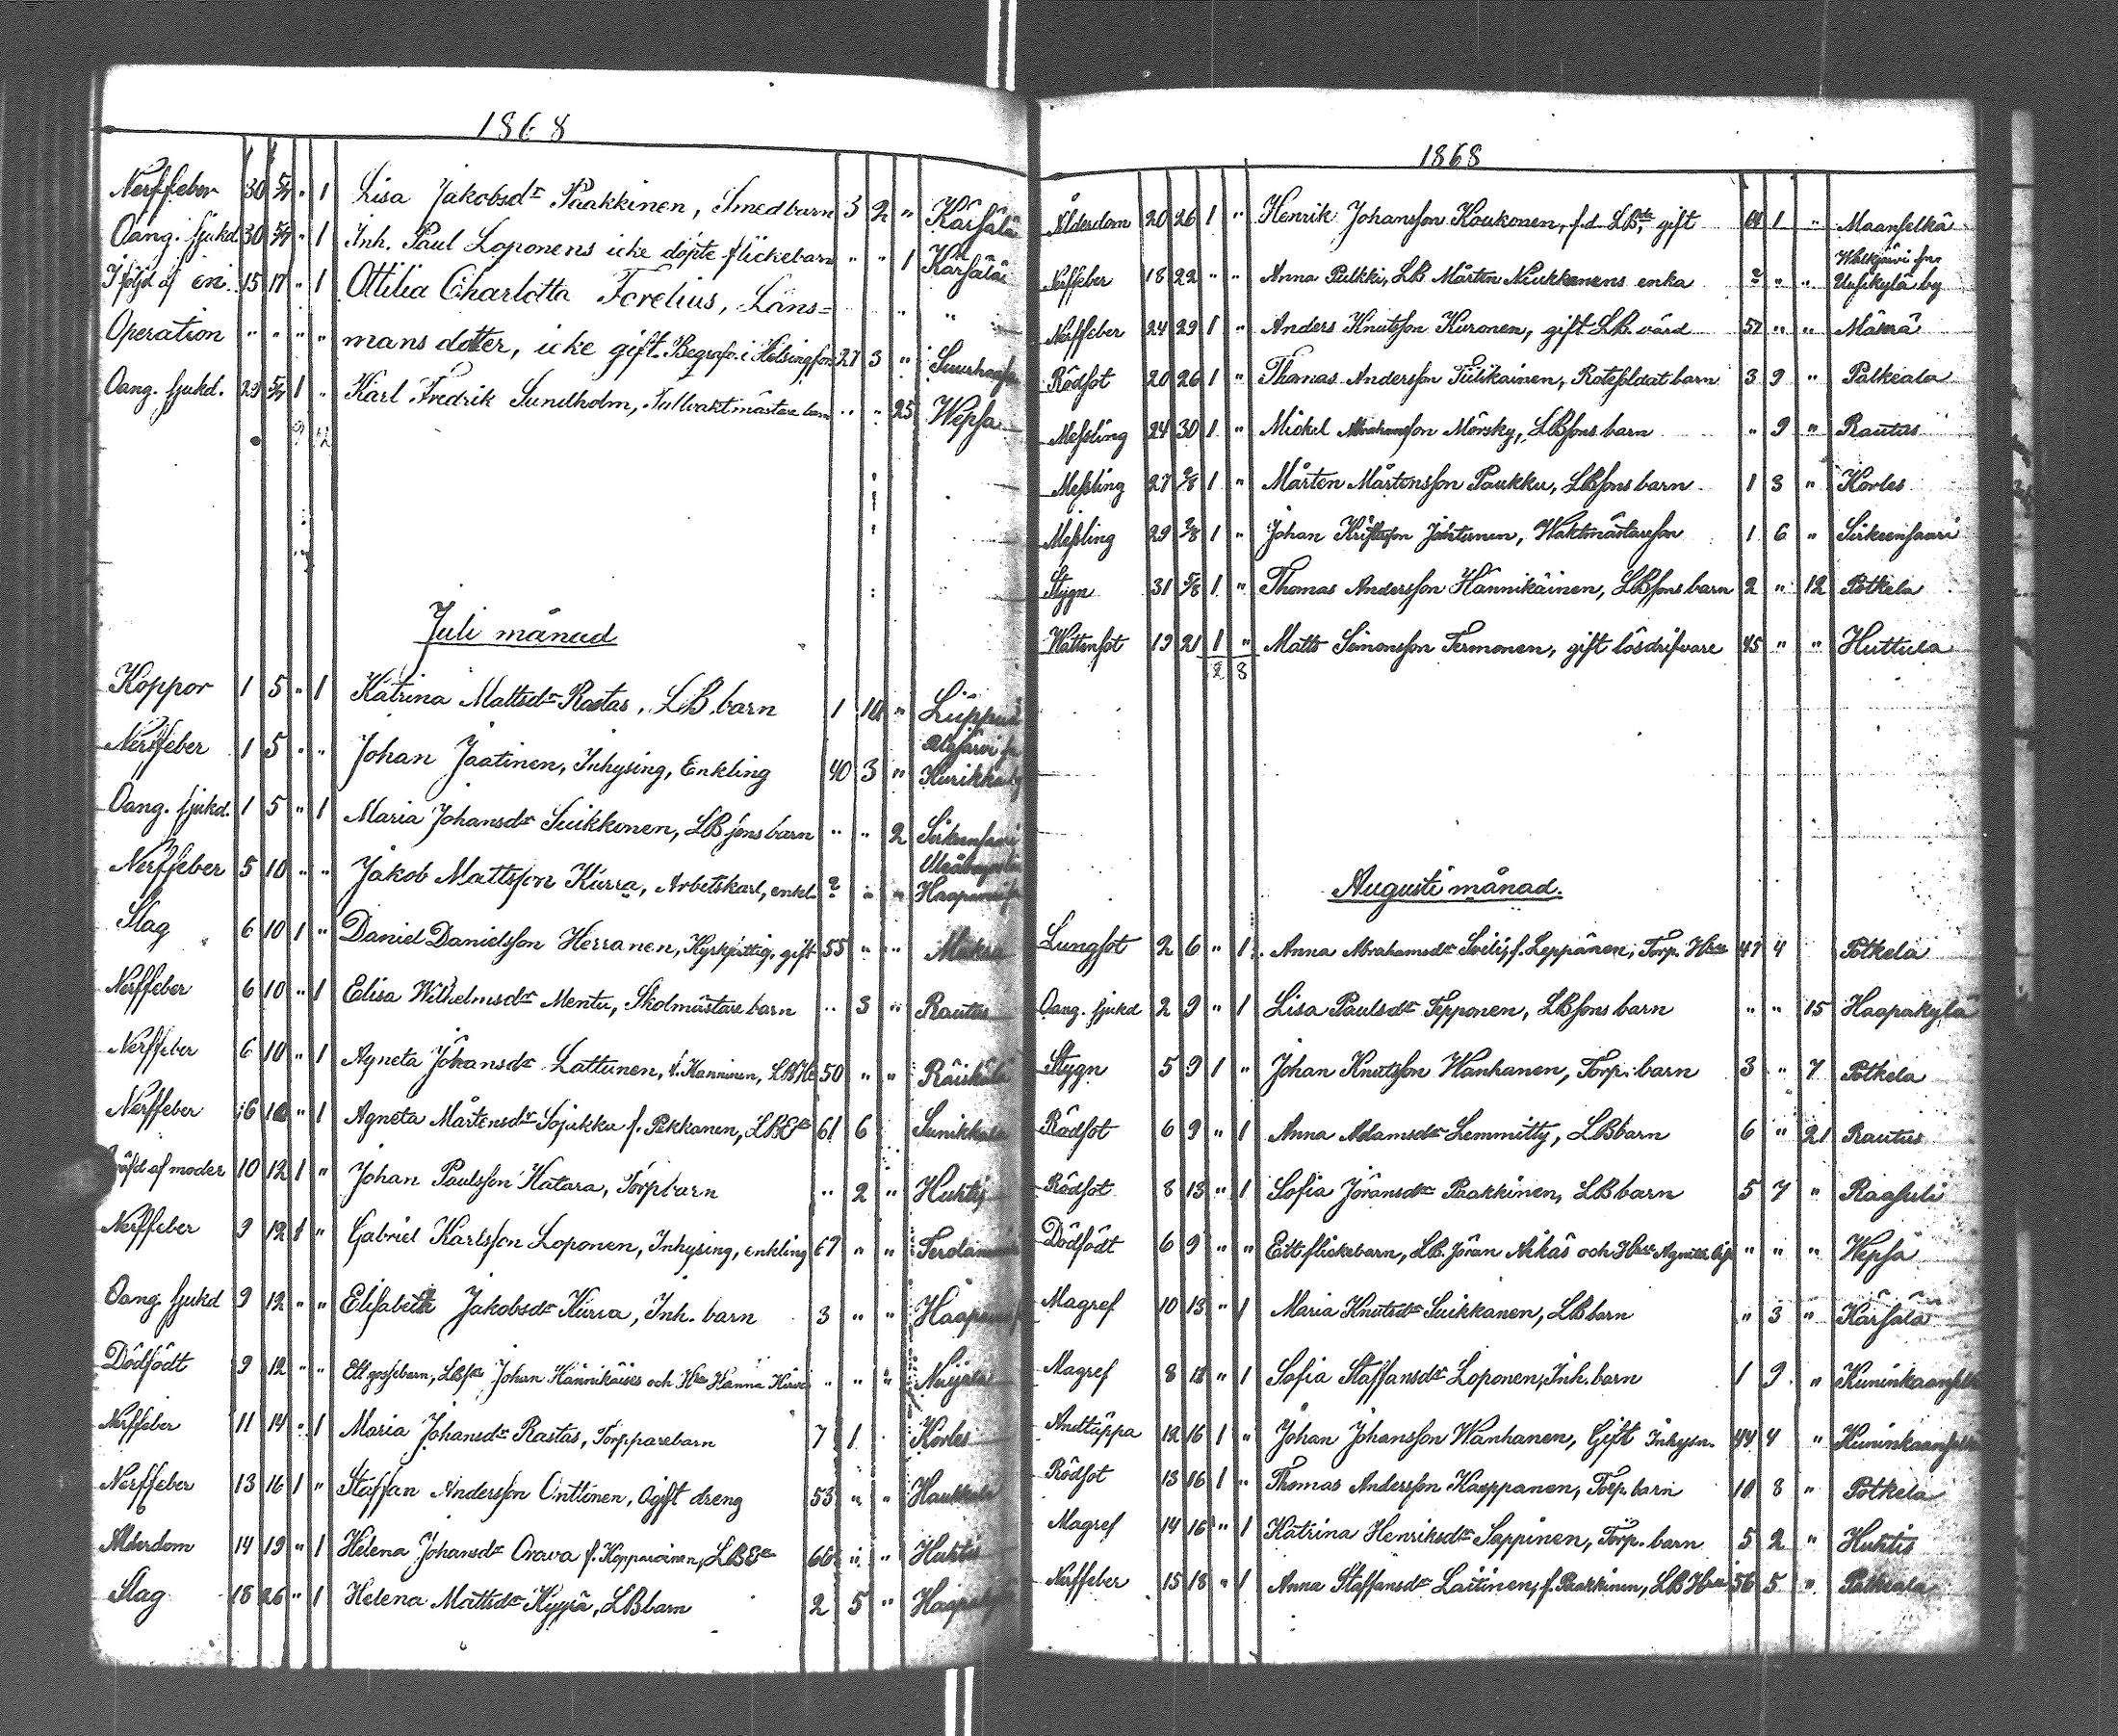 1868
Nerffeber 30 5/7 " 1 Lisa Jakobsdr Paakkinen, Smedbarn 3 2 " Kärsälä
Oang. sjukd 30 5/7 " 1 Inh. Paul Loponens icke döpte flickebarn " " 1 Kärsälä
I följd af en 15 17 " 1 Ottilia Charlotta Forelius, Läns= " "
Operation " " " " mans dotter, icke gift. Begrafn. i Helsingfors 27 3 "
Oang. sjukd. 29 5/7 1 " Karl Fredrik Sundholm, Tullvaktmästare barn " " 25 Wepsa
Juli månad
Koppor 1 5 " 1 Katrina Mattsdr Rastas, LB. barn 1 10 "
Nerffeber 1 5 " " Johan Jaatinen, Inhysing, Enkling 40 3 "
Oang. sjukd. 1 5 " 1 Maria Johansdr Suikkonen, LBsons barn " " 2 Sirkeensaari
Nerffeber 5 10 " " Jakob Mattsson Kurra, Arbetskarl, enkl. ? " "
Slag 6 10 1 " Daniel Danielsson Herranen, Kyrkfattig, gift 55 " "
Nerffeber 6 10 " 1 Elisa Wilhelmsdr Mentu, Skolmästare barn " 3 " Rautus
Nerffeber 6 10 " 1 Agneta Johansdr Lattunen, f. Hanninen, 50 " "
Nerffeber 6 10 " 1 Agneta Mårtensdr Sojukku f. Pekkanen, LBEa 61 6
af moder 10 12 1 " Johan Paulsson Hatara, Torpbarn " 2 " Huhtis
Nerffeber 9 12 1 " Gabriel Karlsson Loponen, Inhysing, enkling 67 " "
Oang. sjukd 9 12 " " Elisabeth Jakobsdr Kurra, Inh. barn 3 " "
Dödfödt 9 12 " " Ett gossebarn, Johan Hännikäises och Hanna " " "
Nerffeber 11 14 " 1 Maria Johansdr Rastas, Torpparebarn 7 1 Korles
Nerffeber 13 16 1 " Staffan Andersson Onttinen, Ogift dreng 53 " "
Ålderdom 14 19 " 1 Helena Johansdr Orava f. Kopparoinen, LBEa 66 " " Huhtis
Slag 18 26 " 1 Helena Mattsdr Kyyrä, LBbarn 2 5 "
1868
Ålderdom 20 26 1 " Henrik Johansson Koukonen, f.d. LBde gift 64 1 " Maanselkä
Walkjärvi
Nerffeber 18 22 " " Anna Pulkki, LB Mårten Niukkanens enka ? " " Uusikylä by
Nerffeber 24 29 1 " Anders Knutsson Kuronen, gift LB. värd 57 " "
Rödsot 20 26 1 " Thomas Andersson Tiilikainen, Rotesoldat barn 3 9 " Palkeala
Messling 24 30 1 " Mickel Abrahamsson Mörsky, LBsons barn " 9 " Rautus
Messling 27 2/8 1 " Mårten Mårtensson Paukku, LBsons barn 1 3 " Korles
Messling 29 2/8 1 " Johan Juhtunen, Waktmästareson 1 6 " Sirkeensaari
Stygn 31 5/8 1 " Thomas Andersson Hännikäinen, LBsons barn 2 " 12 Potkela
Wattensot 19 21 1 " Matts Simonsson Termonen, gift lösdrifvare 45 " " Huttula
8 8
Augusti månad.
Lungsot 2 6 " 1 Anna Abrahamsdr f. Leppänen, Torp. Hru 47 4 Potkela
Oang. sjukd 2 9 " 1 Lisa Paulsdr Tepponen, LBsons barn " " 15 Haapakylä
Stygn 5 9 1 " Johan Knutsson Wanhanen, Torp. barn 3 " 7 Potkela
Rödsot 6 9 " 1 Anna Adamsdr Lemmitty, LBbarn 6 " 21 Rautus
Rödsot 8 13 " 1 Sofia Jöransdr Paakkinen, LBbarn 5 7 " Raasuli
Dödfödt 6 9 " " Ett flickebarn, LB. Jöran Aikäs och Hru " " " Wepsa
Magref 10 13 " 1 Maria Knutsdr Suikkanen, LBbarn " 3 " Kärsälä
Magref 8 12 " 1 Sofia Staffansdr Loponen, Inh. barn 1 9 "
Andtäppa 12 16 1 " Johan Johansson Wanhanen, Gift Inhysn. 44 4 "
Rödsot 13 16 1 " Thomas Andersson Kaeppanen, Torp. barn 10 8 " Potkela
Magref 14 16 " 1 Katrina Henriksdr Sappinen, Torp. barn 5 2 " Huhtis
Nerffeber 15 18 " 1 Anna Staffansdr Laitinen, f. Paakkinen, LB Hru 56 5 " Palkeala